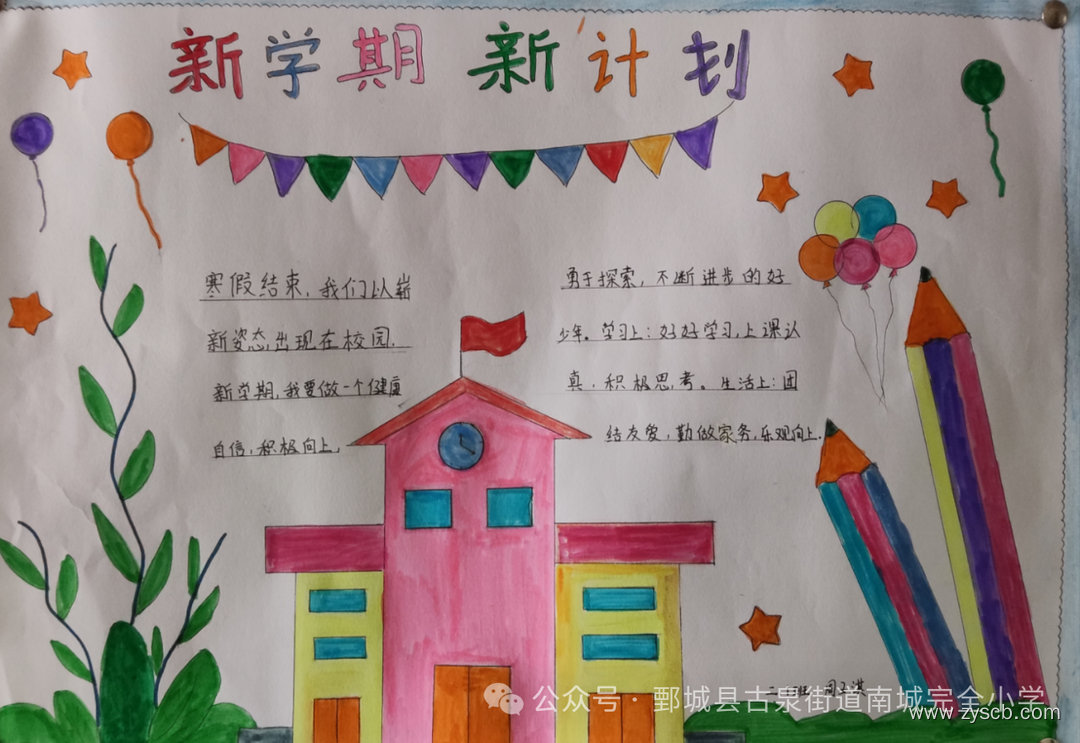 新学期 新计划
寒假结束，我们以崭
新姿态出现在校园.
新学期，我要做一个健康
自信，积极向上，
勇于探索，不断进步的好
少年。学习上：好好学习，上课认
真，积极思考。生活上：团
结友爱，勤做家务，乐观向上.
公众号 · 鄄城县古泉街道南城完全小学
www.zyscb.com